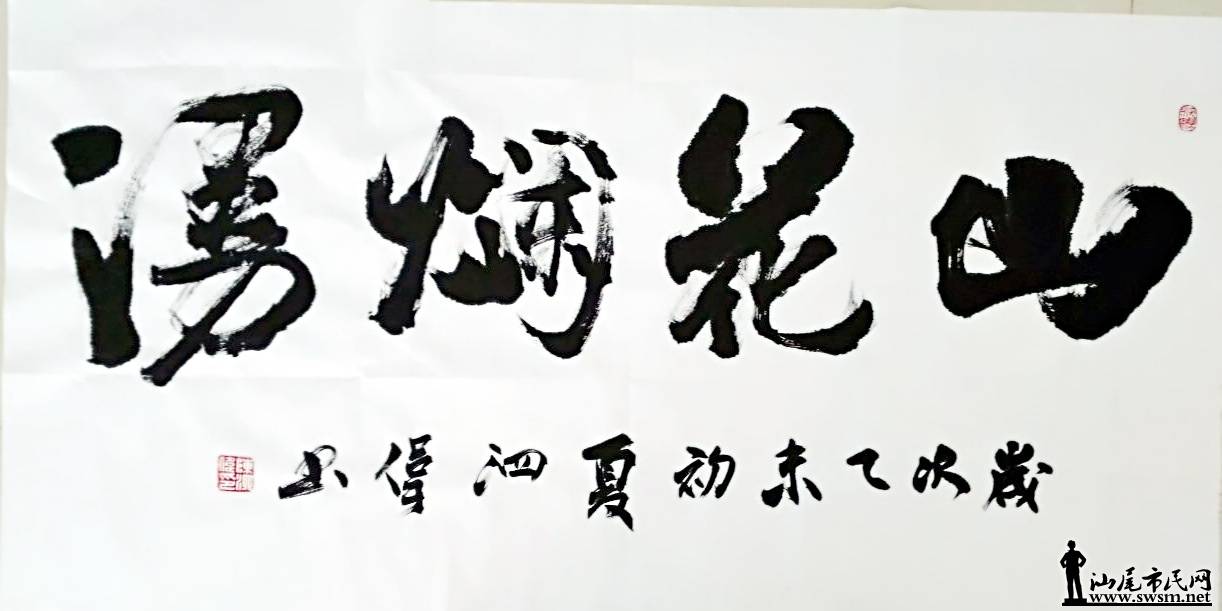 山花爛漫
歲次乙未初夏泗偉书
汕尾市民网
www.swsm.net